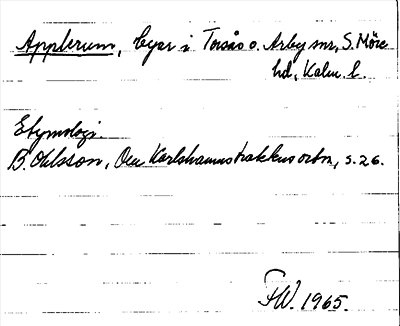 Applerum, byar i Torsås o. Arby snr, S. Möre
hd, Kalm. l.
Etymologi.
B. Ohlsson, Om Karlshamnstraktens ortn., s. 26.
FW. 1965.